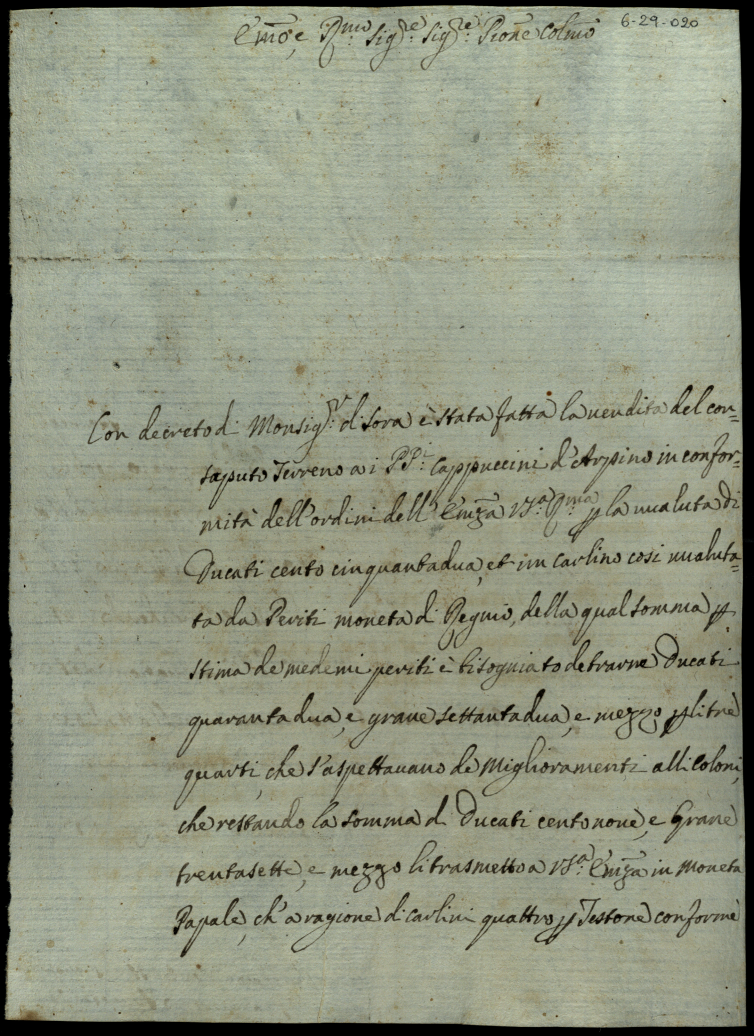 6-29-020
Emo, e Rmo Sigre Sigre Prone Colmo
Con decreto di Monsigr: di Sora è stata fatta la uendita del con=
saputo Terreno a i PPi: Cappuccini d'Arpino in confor=
mità dell'ordini dell' Emza Vra Rma p la ualuta di
Ducati cento cinquantadua, et un carlino cosi ualuta=
ta da Periti moneta di Regnio, della qual somma p
stima de medemi periti è bisogniato detrarne Ducati
quarantadua, e grane settantadua, e mezzo p li trè
quarti, che s'aspettauano de Miglioramenti alli coloni,
che restando la somma di Ducati centonoue, e Grane
trentasette, e mezzo li trasmetto a Vra: Emza in moneta
Papale, ch'a ragione di carlini quattro p Testone conforme